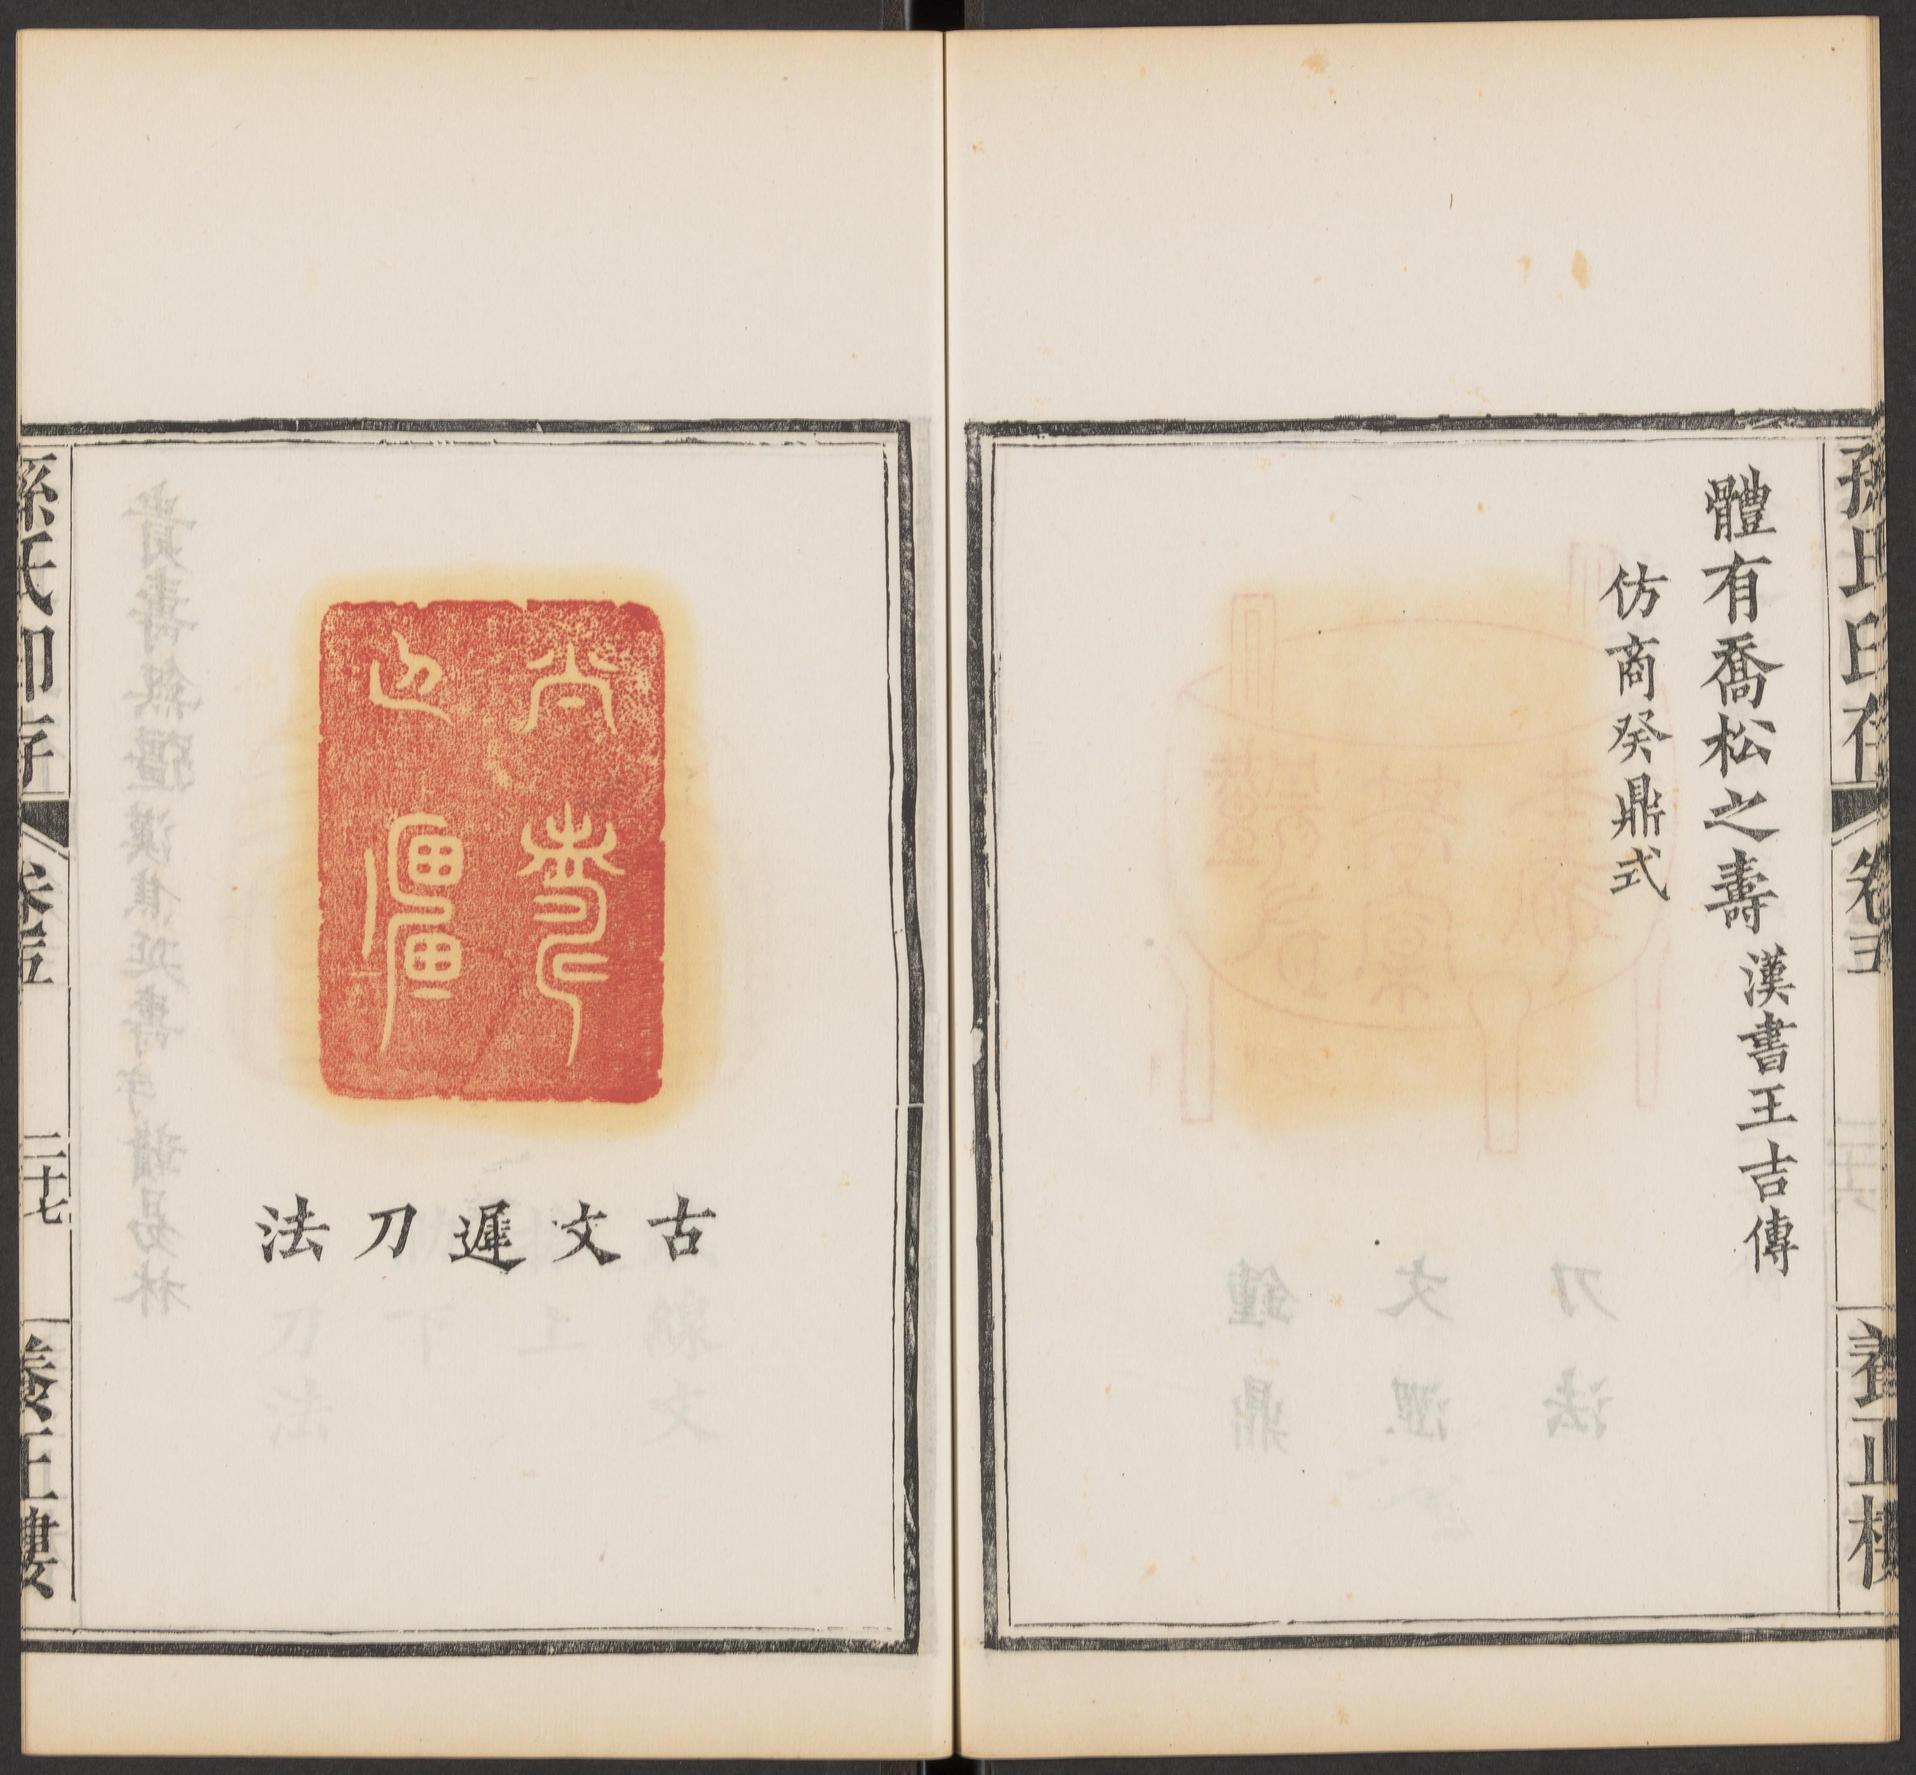 體有喬松之壽漢書王吉傳
仿商癸鼎式
孫氏印存
卷五
養正樓
古文遲刀法
孫氏印存
卷五
二十七
養正樓